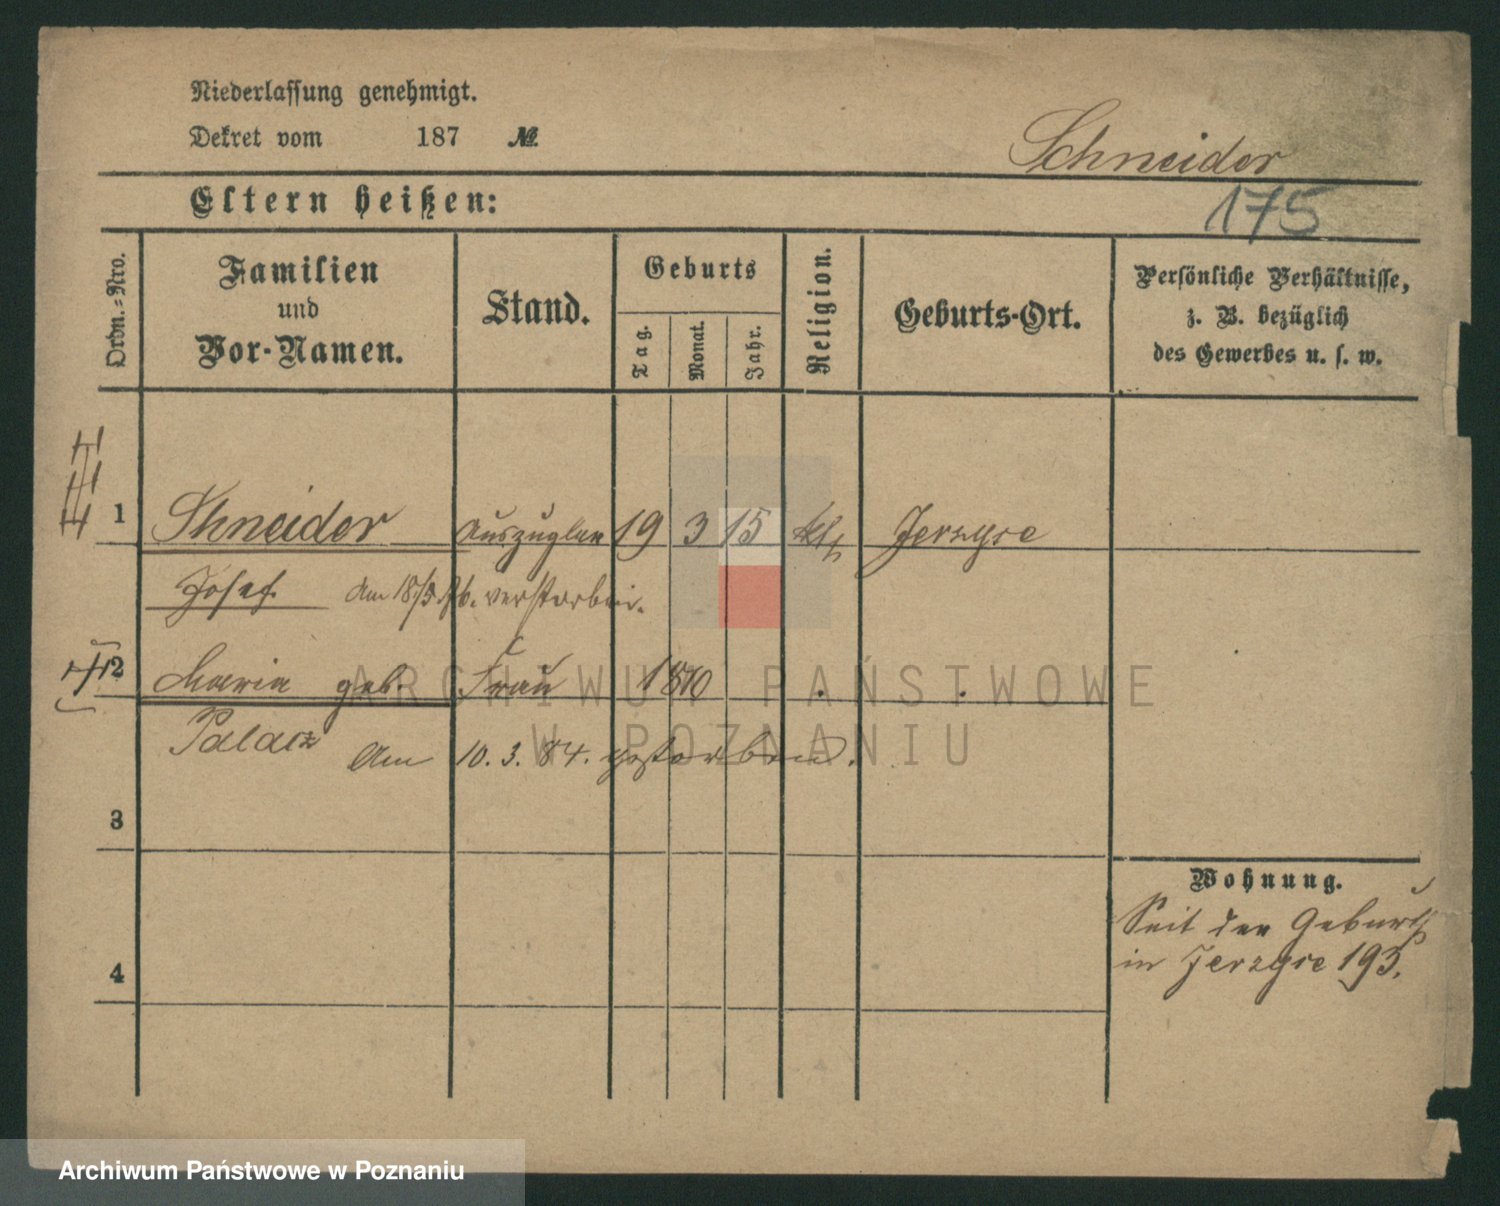 Niederlassung genehmigt.
Dekret vom 187 №
Schneider
Eltern heißen:
175
Ordn.-Nro.
Familien und Vor-Namen.
Stand.
Geburts
Tag.
Monat.
Jahr.
Religion.
Geburts-Ort.
Persönliche Verhältnisse,
z. B. bezüglich
des Gewerbes u. s. w.
1 Schneider Auszügler 19 3 15 kth Jerzyce
Josef. Am 18/5 76. verstorben.
2 Maria geb. Frau 1810 . .
Palacz Am 10. 3. 84. gestorben.
3
4
Wohnung.
Seit der Geburt
in Jerzyce 193.
ARCHIWUM PAŃSTWOWE
W POZNANIU
Archiwum Państwowe w Poznaniu